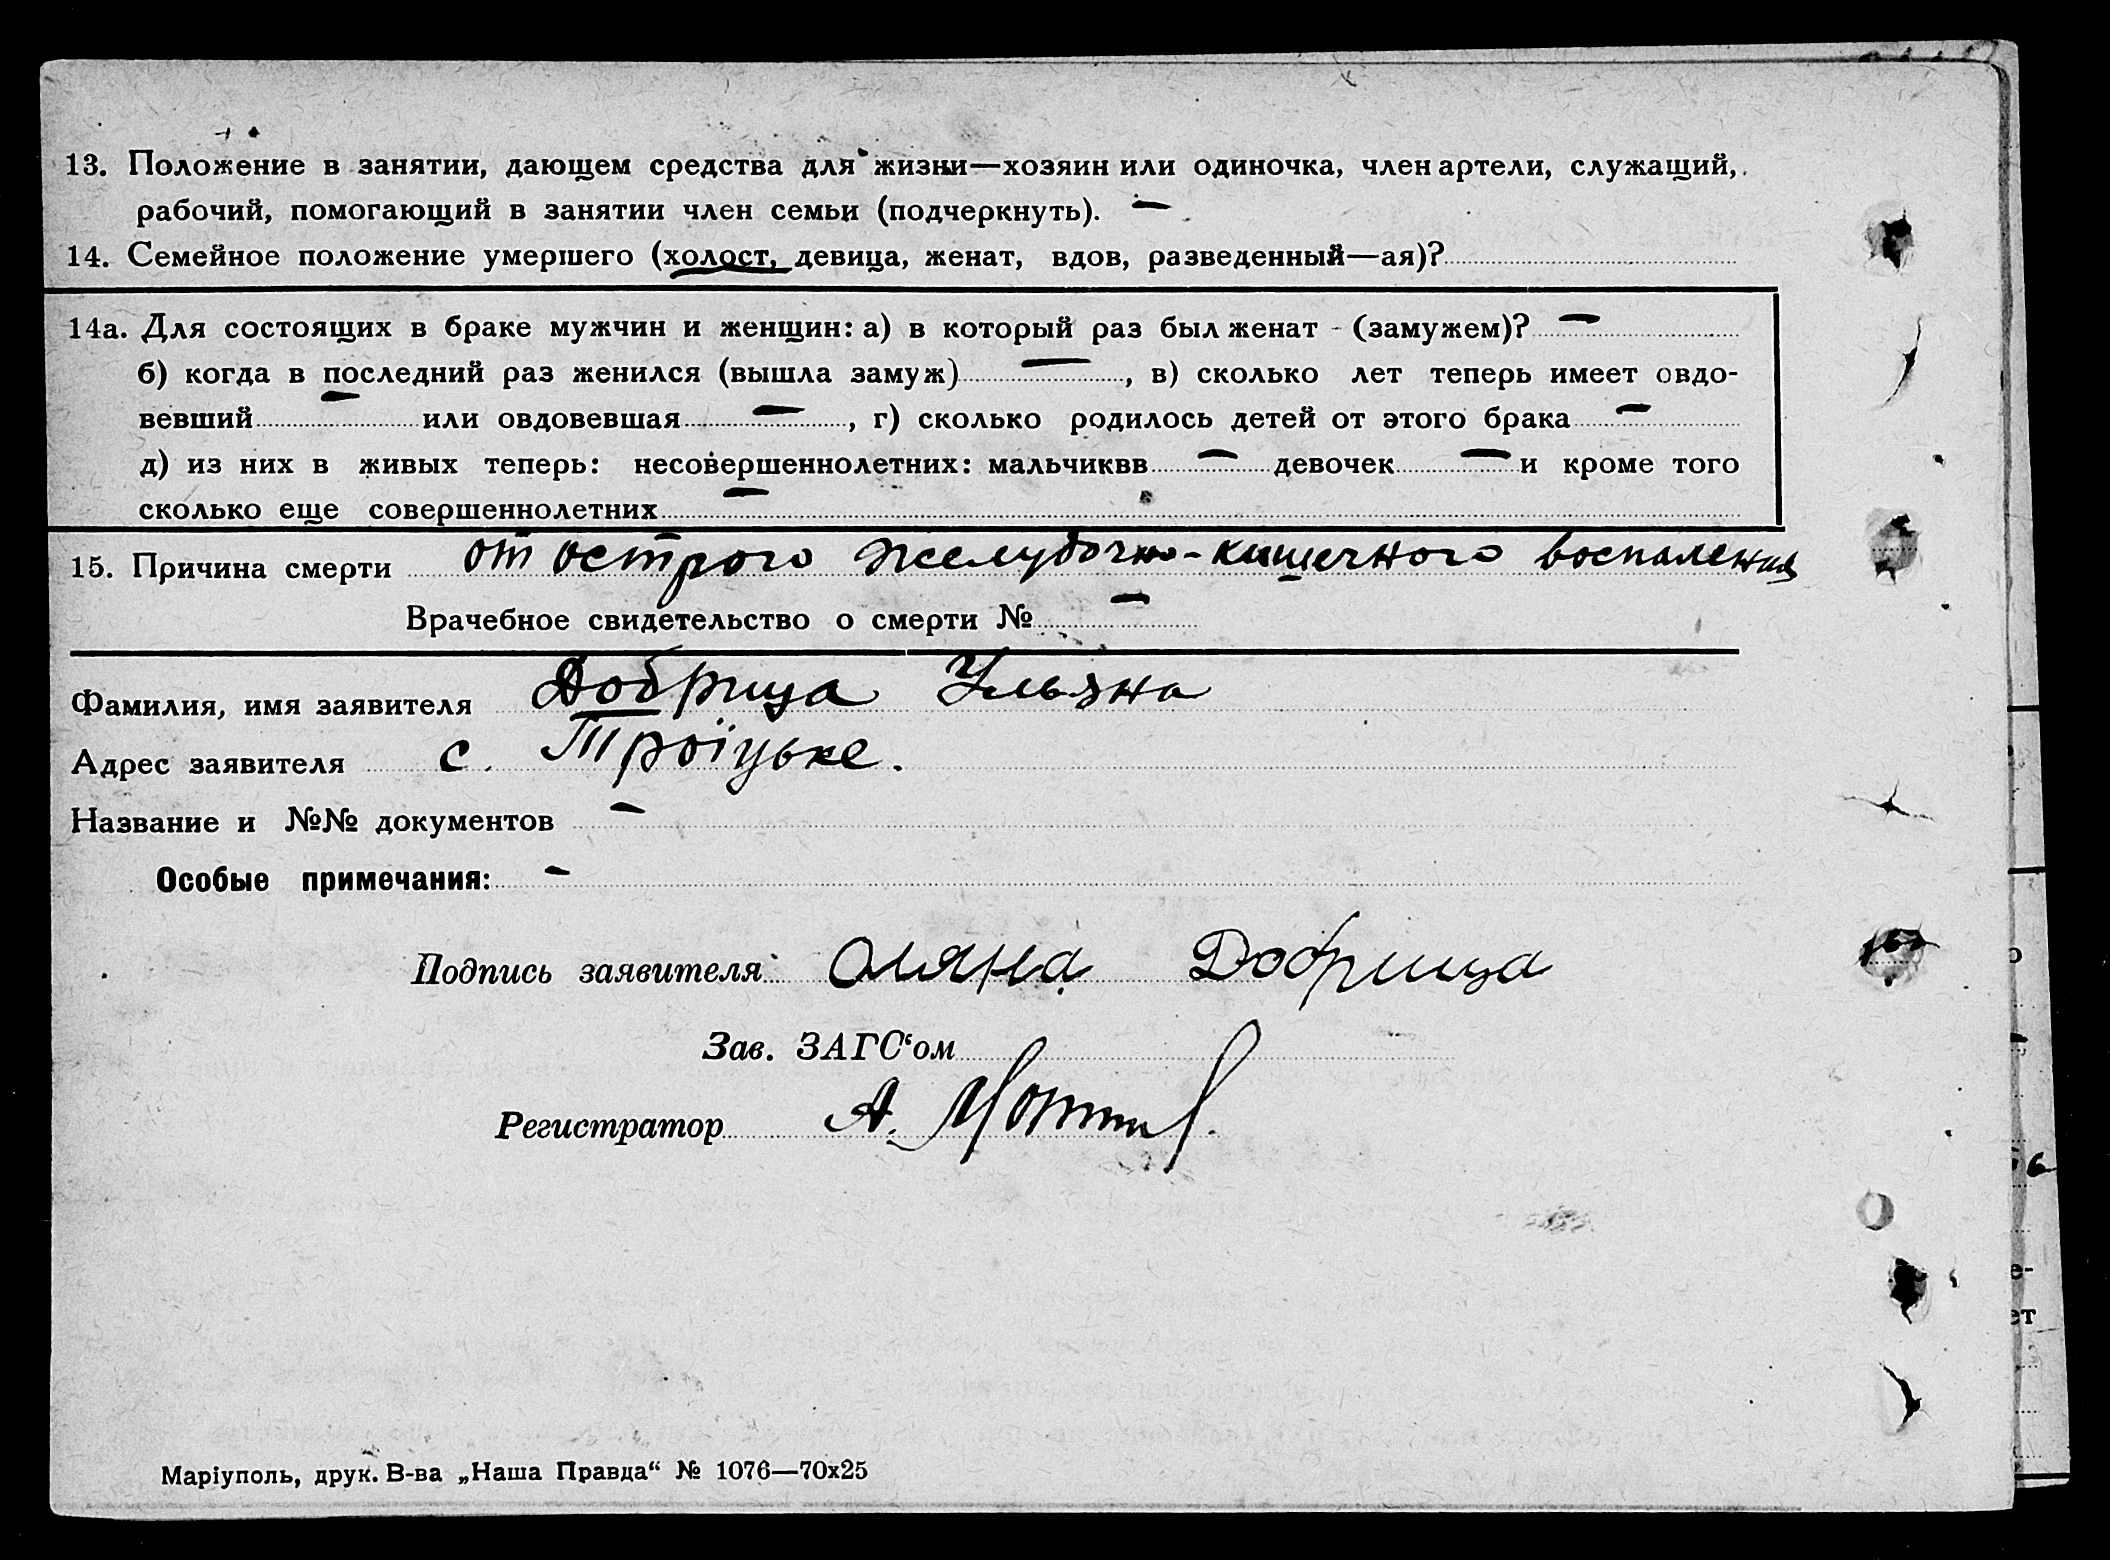 13. Положение в занятии, дающем средства для жизни—хозяин или одиночка, член артели, служащий,
рабочий, помогающий в занятии член семьи (подчеркнуть). —
14. Семейное положение умершего (холост, девица, женат, вдов, разведенный—ая)?
14а. Для состоящих в браке мужчин и женщин: а) в который раз был женат - (замужем)? —
б) когда в последний раз женился (вышла замуж) —, в) сколько лет теперь имеет овдо-
вевший — или овдовевшая —, г) сколько родилось детей от этого брака —
д) из них в живых теперь: несовершеннолетних: мальчиквв — девочек — и кроме того
сколько еще совершеннолетних —
15. Причина смерти от острого желудочно-кишечного воспаления
Врачебное свидетельство о смерти № —
Фамилия, имя заявителя Добрица Ульяна
Адрес заявителя с. Троїцьке.
Название и №№ документов —
Особые примечания: —
Подпись заявителя: Оляна Добрица
Зав. ЗАГС‘ом
Регистратор А.
Маріуполь, друк. В-ва „Наша Правда“ № 1076—70х25